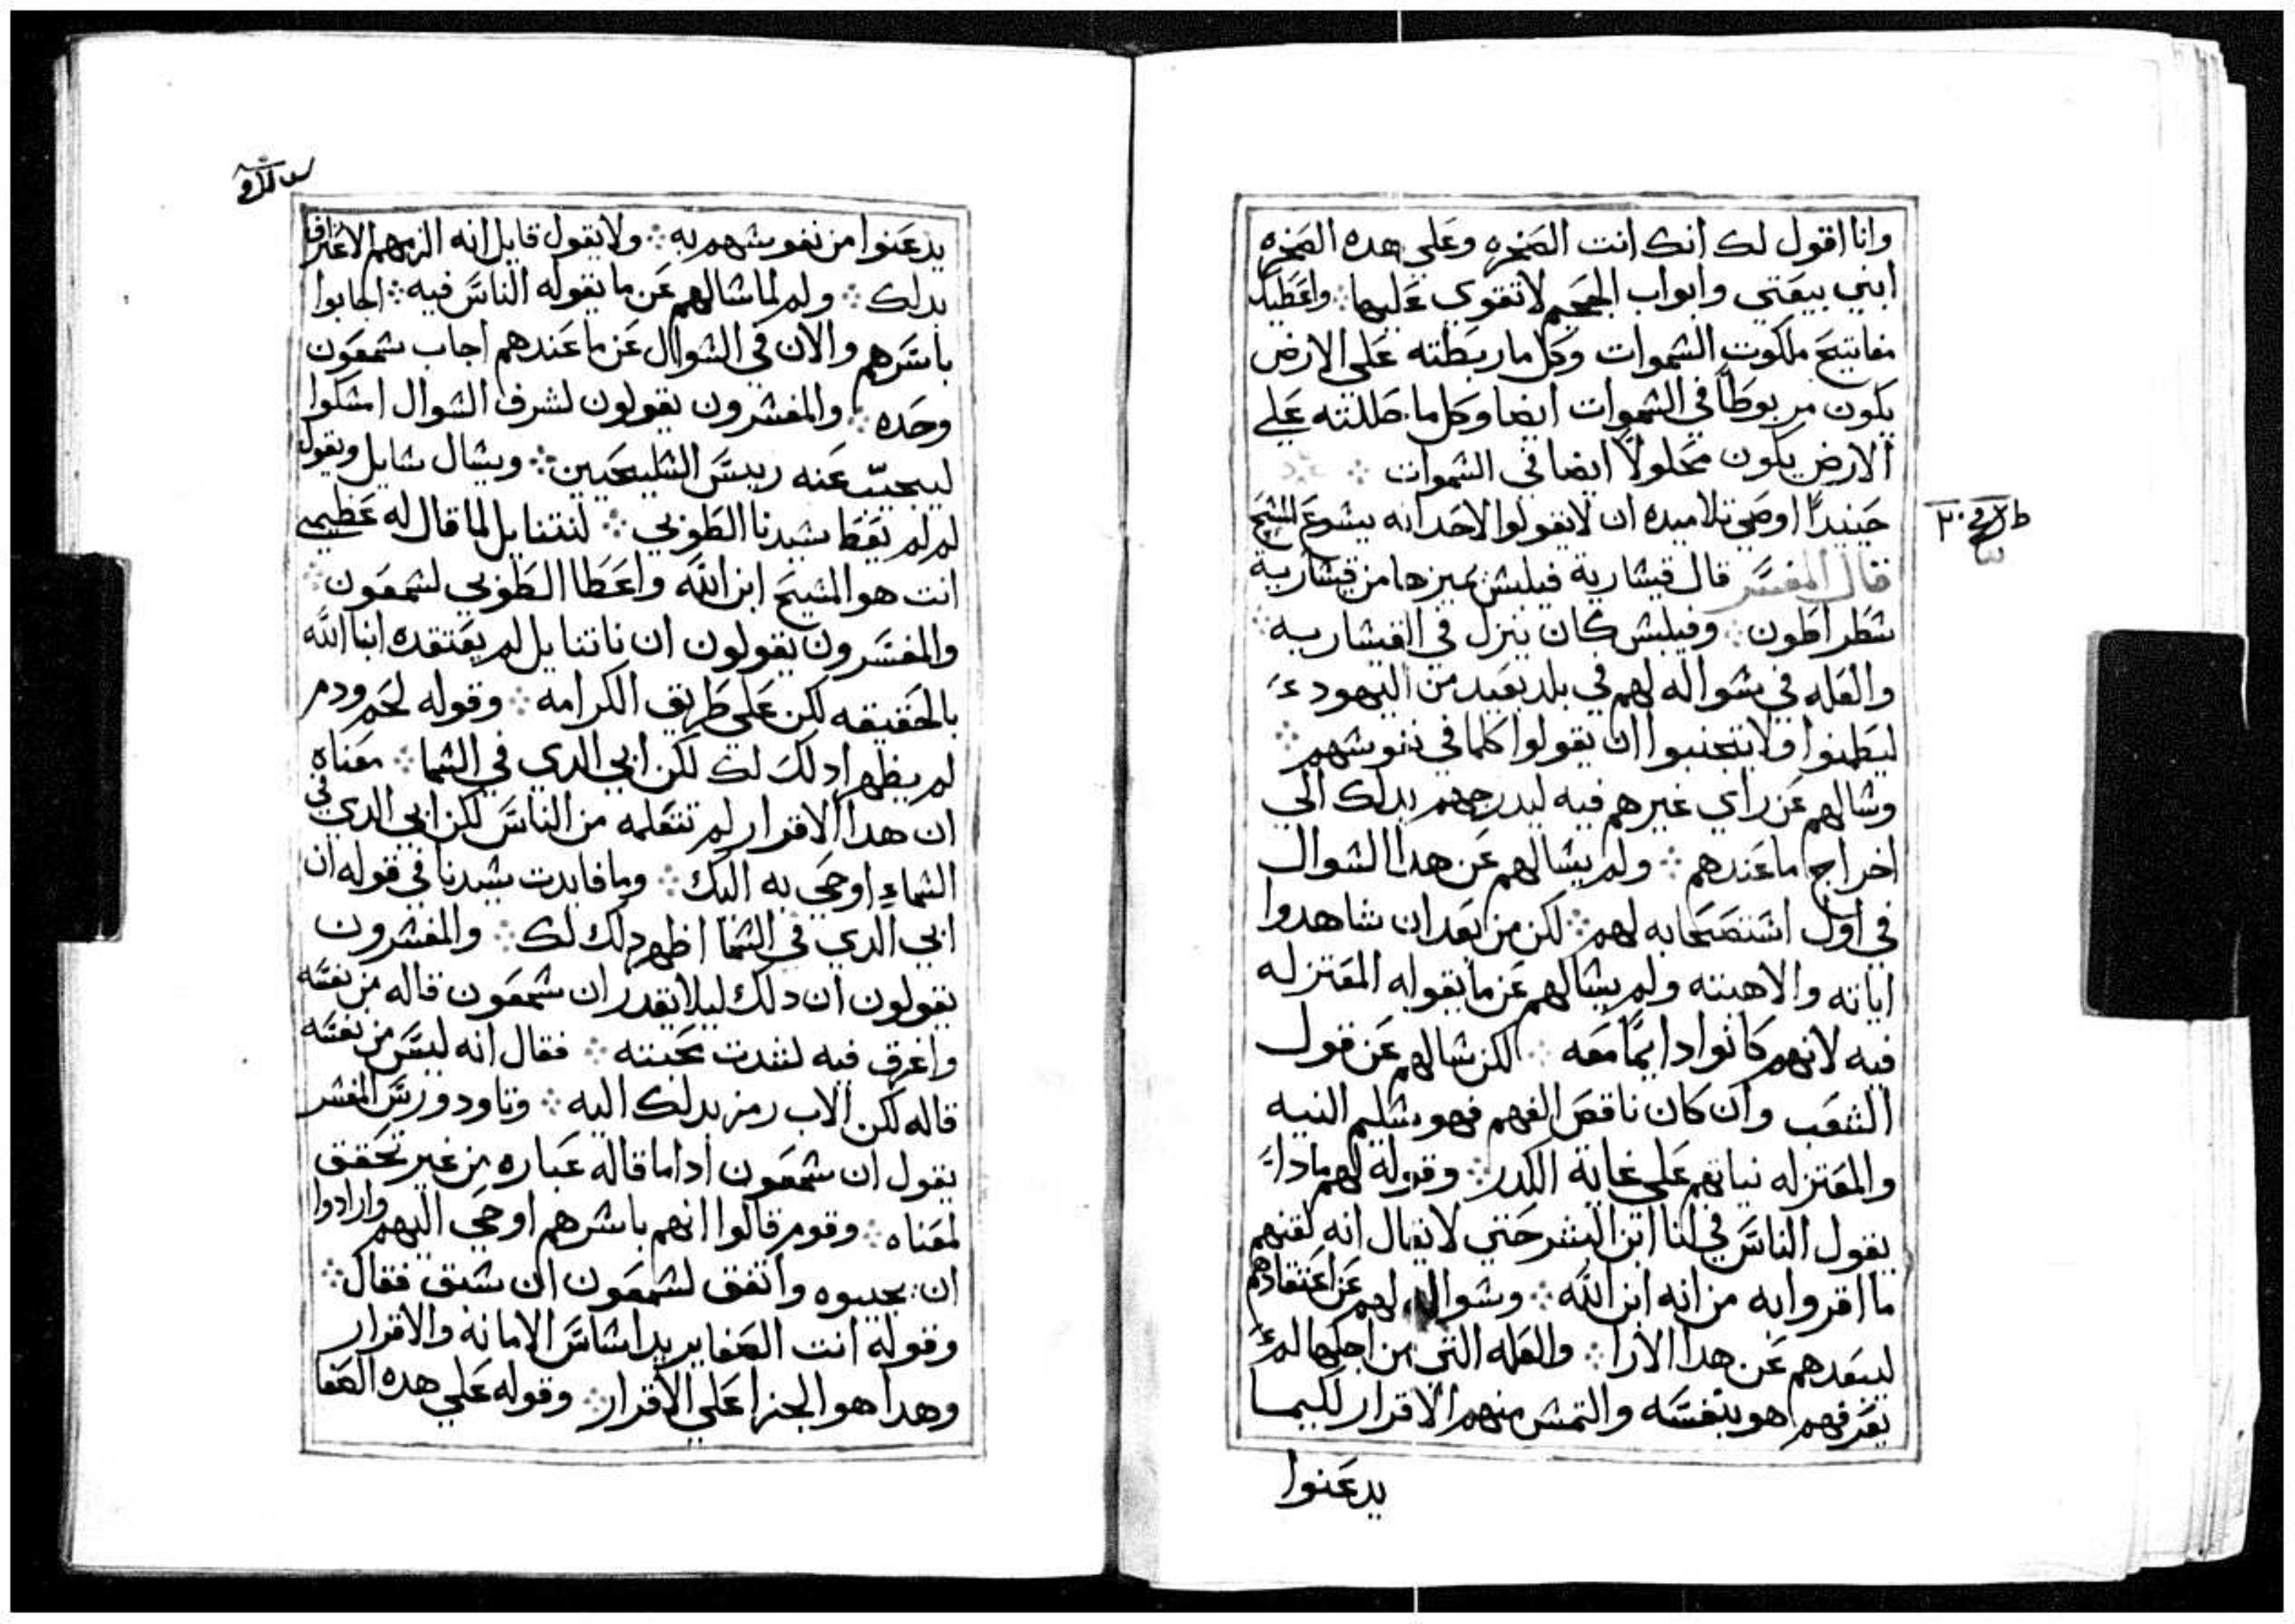 وانا اقول لك انك انت الصخره وعلي هده الصخره
ابني بيعتي وابواب الجحيم لا تقوي عليها ⁘ واعطيك
مفاتيح ملكوت الشموات وكل ما ربطته علي الارض
يكون مربوطاً في الشموات ايضا وكل ما حللته علي
الارض يكون محلولاً ايضا في الشموات ⁘
حينيداً اوصي تلاميده ان لا يقولوا لاحد انه يشوع المشيح
قال المفسر قال قيشارية فيلبش يميزها من قيشارية
شطراطون ⁘ وفيلبش كان ينزل في القيشاريه ⁘
والعله في شواله لهم في بلد بعيد من اليهود
ليطمنوا ولا يتجنبوا ان يقولوا كلما في نفوشهم ⁘
وشالهم عن راي غيرهم فيه ليدرجهم بدلك الي
اخراج ما عندهم ⁘ ولم يشالهم عن هدا الشوال
في اول اشتصحابه لهم ⁘ لكن من بعد ان شاهدوا
اياته والاهيته ولم يشالهم عن ما يقوله المعتزله
فيه لانهم كانوا دايماً معه ⁘ لكن شالهم عن قول
الشعب وان كان ناقص الفهم فهو شليم النيه
والمعتزله نياتهم علي غاية الكدر ⁘ وقوله لهم مادا
يقول الناس في انا ابن البشر حتي لا يقال انه لقنهم
ما اقروا به من انه ابن الله ⁘ وشواله لهم عن اعتقادهم
ليبعدهم عن هدا الارا ⁘ والعله التي من اجلها لم
يعرفهم هو بنفسه والتمش منهم الاقرار لكيما
يدعنوا
يدعنوا من نفوشهم به ⁘ ولا يقول قايل انه الزمهم الاعتراف
بدلك ⁘ ولم لما شالهم عن ما يقوله الناس فيه ⁘ اجابوا
باسرهم والان في الشوال عن ما عندهم اجاب شمعون
وحده ⁘ والمفشرون يقولون لشرف الشوال امشكوا
ليجيب عنه رييس الشليحيين ⁘ ويشال شايل ويقول
لم لم يعط شيدنا الطوبي ⁘ لنتنايل لما قال له
انت هو المشيح ابن الله واعطا الطوبي لشمعون ⁘
والمفسرون يقولون ان ناتنايل لم يعتقده ابنا الله
بالحقيقه لكن علي طريق الكرامه ⁘ وقوله لحم ودم
لم يظهر دلك لك لكن ابي الدي في الشما ⁘ معناه
ان هدا الاقرار لم تتعلمه من الناس لكن ابي الدي في
الشماء اوحي به اليك ⁘ وما فايدت شيدنا في قوله ان
ابي الدي في الشما اظهر دلك لك ⁘ والمفشرون
يقولون ان دلك ليلا يقدر ان شمعون قاله من نفسه
واغرق فيه لشدت محبته ⁘ فقال انه ليس من نفسه
قاله لكن الاب رمز بدلك اليه ⁘ وتاودورس المفشر
يقول ان شمعون ادا ما قاله عباره من غير تحقق
لمعناه ⁘ وقوم قالوا انهم باشرهم اوحي اليهم وارادوا
ان يجيبوه واتفق لشمعون ان شبق فقال ⁘
وقوله انت الصفا يريد اشاس الامانه والاقرار
وهدا هو الجزا علي الاقرار ⁘ وقوله علي هده الصفا